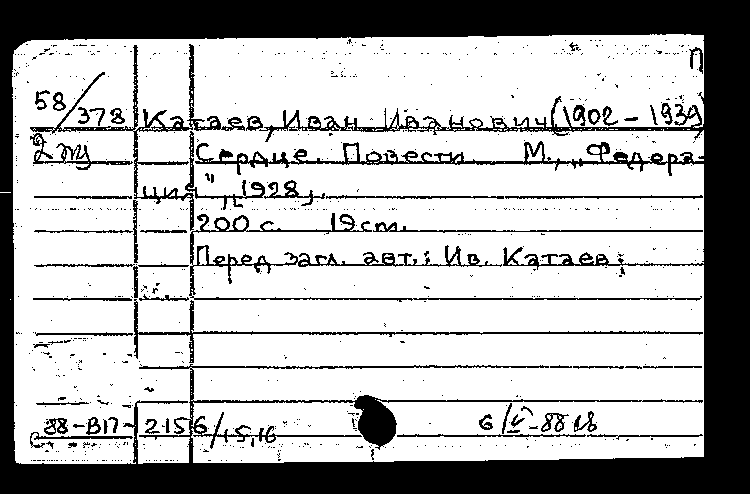 П
58/378 Катаев, Иван Иванович (1902 – 1939)
2 жу Сердце. Повести М., „Федера-
ция", 1928,.
200 с. 19 cm.
Перед загл. авт.: Ив. Катаев;
88-В17-2156/15,16 6/V-88